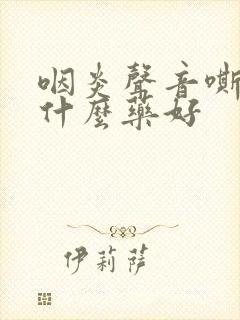 咽炎聲音嘶
什麼藥好
伊莉薩